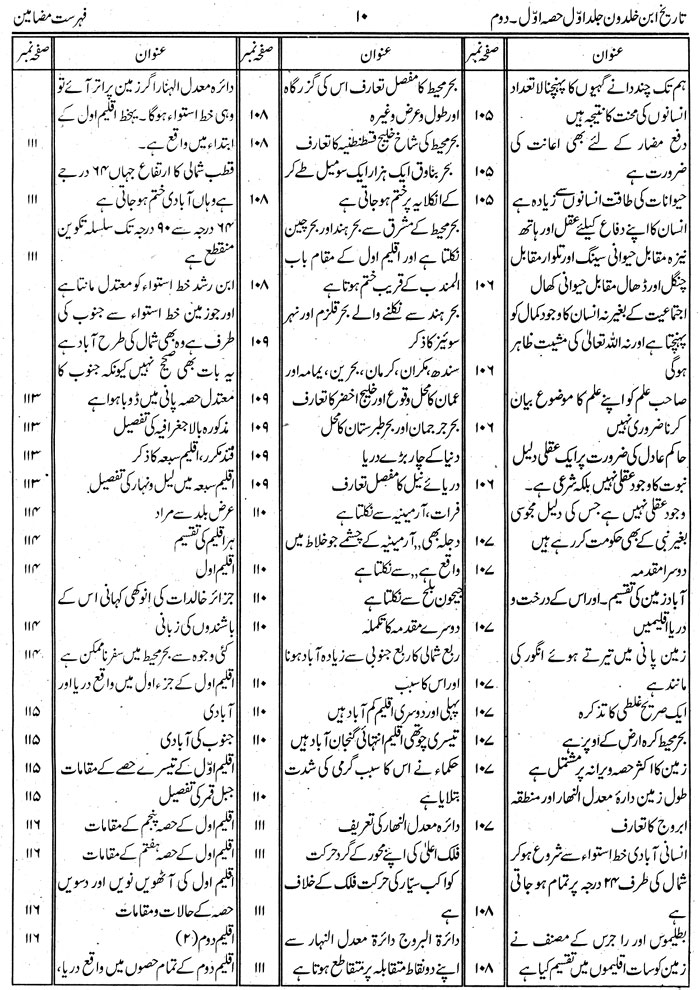 تاریخ ابن خلدون جلد اوّل حصہ اوّل۔ دوم
۱۰
فہرست مضامین
عنوان
صفحہ نمبر
ہم تک چند دانے گہیوں کا پہنچنا لا تعداد
انسانوں کی محنت کا نتیجہ ہیں ۱۰۵
دفع مضار کے لئے بھی اعانت کی
ضرورت ہے ۱۰۵
حیوانات کی طاقت انسانوں سے زیادہ ہے ۱۰۵
انسان کا اپنے دفاع کیلئے عقل اور ہاتھ
نیزہ مقابل حیوانی سینگ اور تلوار مقابل
چنگل اور ڈھال مقابل حیوانی کھال ۱۰۶
اجتماعیت کے بغیر نہ انسان کا وجود کمال کو
پہنچتا ہے اور نہ اللہ تعالیٰ کی مشیت ظاہر
ہوگی ۱۰۶
صاحب علم کو اپنے علم کا موضوع بیان
کرنا ضروری نہیں ۱۰۶
حاکم عادل کی ضرورت پر ایک عقلی دلیل
نبوت کا وجود عقلی نہیں بلکہ شرعی ہے۔ ۱۰۶
وجود عقلی نہیں ہے جس کی دلیل مجوسی
بغیر نبی کے بھی حکومت کر رہے ہیں ۱۰۷
دوسرا مقدمہ ۱۰۷
آباد زمین کی تقسیم۔ اور اس کے درخت و
دریا اقلیمیں ۱۰۷
زمین پانی میں تیرتے ہوئے انگور کی
مانند ہے ۱۰۷
ایک صریح غلطی کا تذکرہ ۱۰۷
بحر محیط کرہ ارض کے اوپر ہے ۱۰۷
زمین کا اکثر حصہ ویرانہ پر مشتمل ہے ۱۰۷
طول زمین دارۂ معدل النھار اور منطقہ
ابروج کا تعارف ۱۰۷
انسانی آبادی خط استواء سے شروع ہو کر
شمال کی طرف ۲۴ درجہ پر تمام ہو جاتی
ہے ۱۰۸
بطلیموس اور را جرس کے مصنف نے
زمین کو سات اقلیموں میں تقسیم کیا ہے ۱۰۸
عنوان
صفحہ نمبر
بحر محیط کا مفصل تعارف اس کی گزر گاہ
اور طول و عرض وغیرہ ۱۰۸
بحر محیط کی شاخ خلیج قسطنطنیہ کا تعارف ۱۰۸
بحر بناوق ایک ہزار ایک سو میل طے کر
کے انکلایہ پر ختم ہو جاتی ہے ۱۰۸
بحر محیط کے مشرق سے بحر ہند اور بحر چین
نکلتا ہے اور اقلیم اول کے مقام باب
المندب کے قریب ختم ہوتا ہے ۱۰۸
بحر ہند سے نکلنے والے بحر قلزم اور نہر
سوئیز کا ذکر ۱۰۹
سندھ، مکران، کرمان، بحرین، یمامہ اور
عمان کا محل وقوع اور خلیج اخضر کا تعارف ۱۰۹
بحر جرجمان اور بحر طبرستان کا محل ۱۰۹
دنیا کے چار بڑے دریا ۱۰۹
دریائے نیل کا مفصل تعارف ۱۰۹
فرات، آرمینیہ سے نکلتا ہے ۱۱۰
دجلہ بھی ,,آرمینیہ کے چشمے جو خلاط میں
واقع ہے,, سے نکلتا ہے ۱۱۰
جیحون بلخ سے نکلتا ہے ۱۱۰
دوسرے مقدمہ کا تکملہ ۱۱۰
ربع شمالی کا ربع جنوبی سے زیادہ آباد ہونا
اور اس کا سبب ۱۱۰
پہلی اور دوسری اقلیم کم آباد ہیں ۱۱۰
تیسری چوتھی اقلیم انتہائی گنجان آباد ہیں ۱۱۰
حکماء نے اس کا سبب گرمی کی شدت
بتلایا ہے ۱۱۰
دائرہ معدل النھار کی تعریف ۱۱۱
فلک اعلیٰ کی اپنے محور کے گرد حرکت ۱۱۱
کواکب سیّار کی حرکت فلک کے خلاف
ہے ۱۱۱
دائرۃ البروج دائرۃ معدل النہار سے
اپنے دو نقاط متقابلہ پر متقاطع ہوتا ہے ۱۱۱
عنوان
صفحہ نمبر
دائرہ معدل الہنار اگر زمین پر اتر آئے تو
وہی خط استواء ہوگا۔ یہ خط اقلیم اول کے
ابتداء میں واقع ہے۔ ۱۱۱
قطب شمالی کا ارتفاع جہاں ۶۴ درجے
ہے وہاں آبادی ختم ہو جاتی ہے ۱۱۱
۶۴ درجہ سے ۹۰ درجہ تک سلسلہ تکوین
منقطع ہے ۱۱۱
ابن رشد خط استواء کو معتدل مانتا ہے
اور جو زمین خط استواء سے جنوب کی
طرف ہے وہ بھی شمال کی طرح آباد ہے
یہ بات بھی صحیح نہیں کیونکہ جنوب کا
معتدل حصہ پانی میں ڈوبا ہوا ہے ۱۱۳
مذکورہ بالا جغرافیہ کی تفصیل ۱۱۳
قند مکرر، اقلیم سبعہ کا ذکر ۱۱۳
اقلیم سبعہ میں لیل و نہار کی تفصیل ۱۱۳
عرض بلد سے مراد ۱۱۴
ہر اقلیم کی تقسیم
اقلیم اول ۱۱۴
جزائر خالدات کی انوکھی کہانی اس کے
باشندوں کی زبانی ۱۱۴
کئی وجوہ سے بحر محیط میں سفر ناممکن ہے ۱۱۴
اقلیم اول کے جزء اول میں واقع دریا اور
آبادی ۱۱۵
جنوب کی آبادی ۱۱۵
اقلیم اوّل کے تیسرے حصے کے مقامات ۱۱۵
جبل قمر کی تفصیل ۱۱۵
اقلیم اول کے حصہ پنجم کے مقامات ۱۱۶
اقلیم اول کے حصہ ہفتم کے مقامات ۱۱۶
اقلیم اول کی آٹھویں نویں اور دسویں
حصہ کے حالات و مقامات ۱۱۶
اقلیم دوم (۲) ۱۱۶
اقلیم دوم کے تمام حصوں میں واقع دریا،